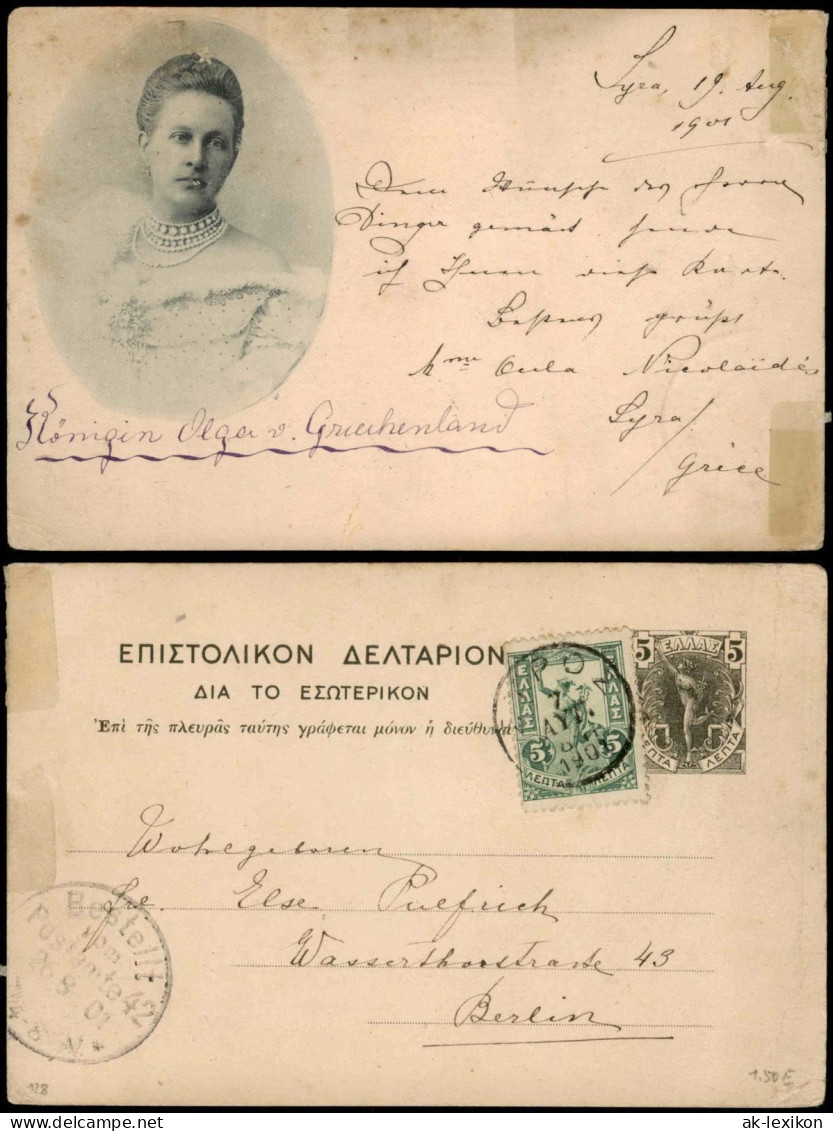 Syra, 19. Aug.
1901
Dem Wunsche des Herrn
Dinger gemäß sende
ich Ihnen diese Karte.
Bestens grüßt
Mme Nicolaïdès
Syra/
Grèce
Königin Olga v. Griechenland
ΕΠΙΣΤΟΛΙΚΟΝ ΔΕΛΤΑΡΙΟΝ
ΔΙΑ ΤΟ ΕΣΩΤΕΡΙΚΟΝ
Ἐπὶ τῆς πλευρᾶς ταύτης γράφεται μόνον ἡ διεύθυνσ
5 ΕΛΛΑΣ 5
ΛΕΠΤΑ ΛΕΠΤΑ
ΕΛΛΑΣ ΕΛΛΑΣ
5 5
ΛΕΠΤΑ ΛΕΠΤΑ
ΑΥΓ.
1901
Wohlgeboren
Frl. Else Pulfrich
Wasserthorstrasse 43
Berlin
Bestellt
vom
Postamte 42
26 8 01
V
128
1.50 E
www.delcampe.net
ak-lexikon